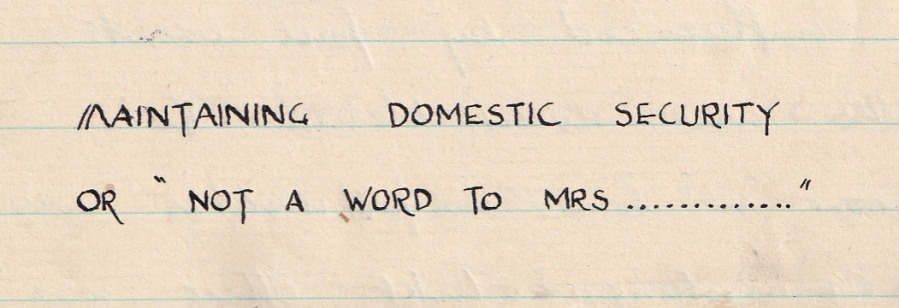 MAINTAINING DOMESTIC SECURITY
OR " NOT A WORD TO MRS ............."